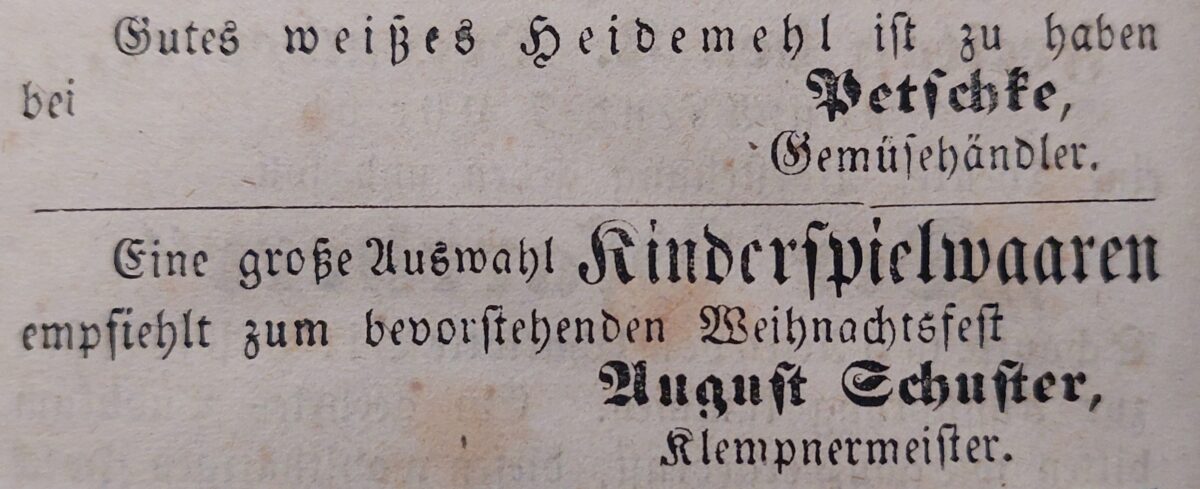 Gutes weißes Heidemehl ist zu haben
bei Petschke,
Gemüsehändler.
Eine große Auswahl Kinderspielwaaren
empfiehlt zum bevorstehenden Weihnachtsfest
August Schuster,
Klempnermeister.